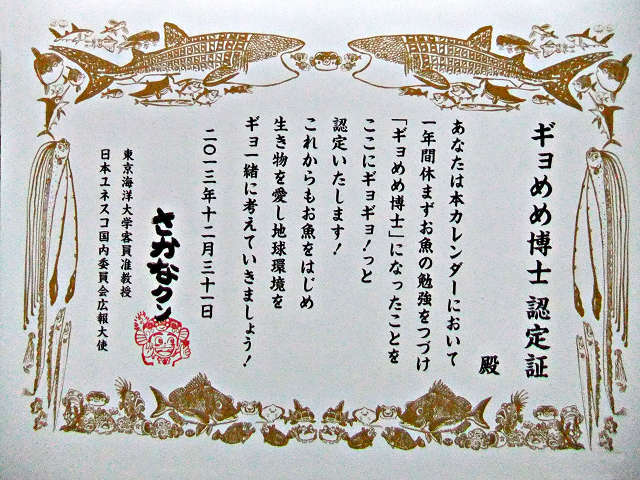 ギョめめ博士 認定証
殿
あなたは本カレンダーにおいて
一年間休まずお魚の勉強をつづけ
「ギョめめ博士」になったことを
ここにギョギョ!っと
認定いたします!
これからもお魚をはじめ
生き物を愛し地球環境を
ギョ一緒に考えていきましょう!
二〇一三年十二月三十一日
さかなクン
東京海洋大学客員准教授
日本ユネスコ国内委員会広報大使